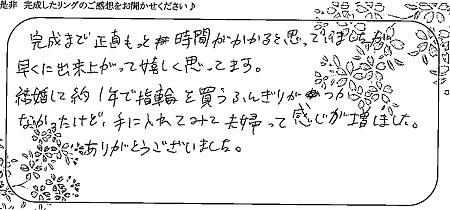 是非 完成したリングのご感想をお聞かせください♪
完成まで正直もっと時間がかかると思っていましたが
早くに出来上がって嬉しく思ってます。
結婚して約1年で指輪を買うふんぎりがつか
なかったけど、手に入れてみて夫婦って感じが増しました。
ありがとうございました。